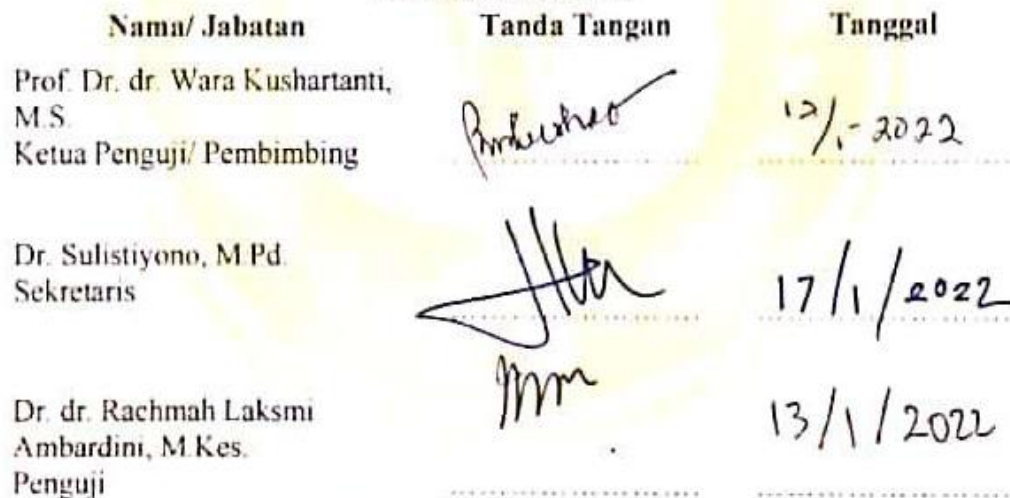 Nama/ Jabatan Tanda Tangan Tanggal
Prof. Dr. dr. Wara Kushartanti,
M.S.
Ketua Penguji/ Pembimbing 12/1-2022
Dr. Sulistiyono, M.Pd.
Sekretaris 17/1/2022
Dr. dr. Rachmah Laksmi
Ambardini, M.Kes. 13/1/2022
Penguji